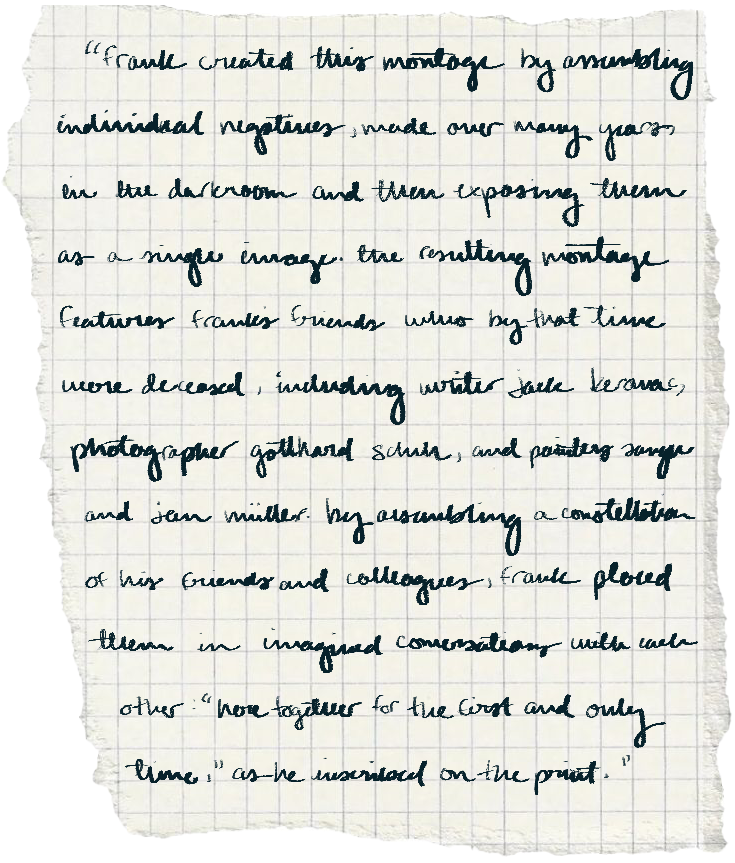 "Frank created this montage by assembling
individual negatives, made over many years,
in the darkroom and then exposing them
as a single image. the resulting montage
features frank's friends who by that time
were deceased, including writer jack kerouac,
photographer gotthard schuh, and painters
and jan müller. by assembling a constellation
of his friends and colleagues, frank placed
them in imagined conversations with each
other: "here together for the first and only
time," as he inscribed on the print."